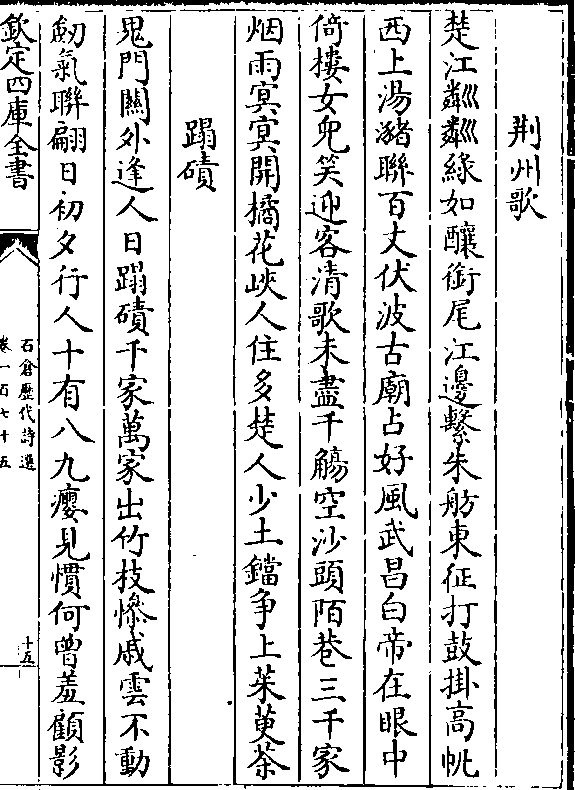 荆州歌
楚江粼粼緑如釀銜尾江邊繫朱舫東征打鼓掛高帆
西上湯猪聯百丈伏波古廟占好風武昌白帝在眼中
倚樓女兒笑迎客清歌未盡千觴空沙頭陌巷三千家
烟雨冥冥開橘花峽人住多楚人少土鐺争上茱萸茶
蹋磧
鬼門關外逢人日蹋磧千家萬家出竹枝慘戚雲不動
劒氣聯翩日初夕行人十有八九癭見慣何曾羞顧影
欽定四庫全書
石倉歷代詩選
卷一百七十五
十五